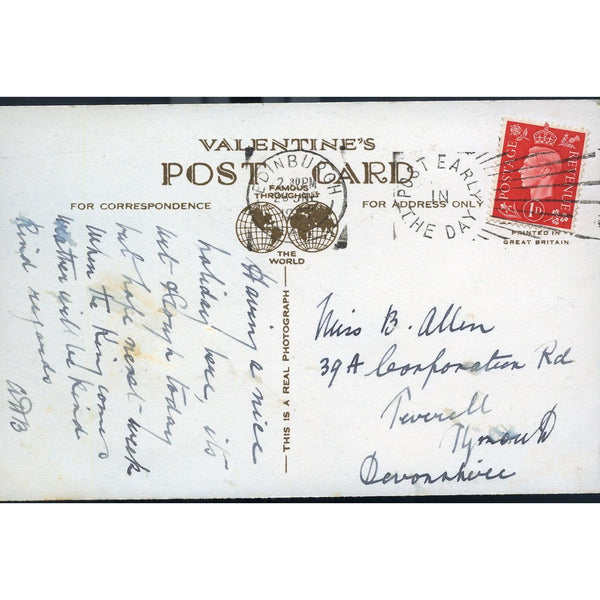 VALENTINE'S
POST CARD
FAMOUS
THROUGHOUT
THE
WORLD
FOR CORRESPONDENCE
FOR ADDRESS ONLY
EDINBURGH
2.30PM
POST EARLY
IN
THE DAY
POSTAGE
REVENUE
1D
PRINTED IN
GREAT BRITAIN
THIS IS A REAL PHOTOGRAPH
Having a nice
holiday here, its
wet today
but hope next week
when the King comes
weather will be kind
Kind regards
Miss B. Allen
39A Corporation Rd
Peverell
Plymouth
Devonshire